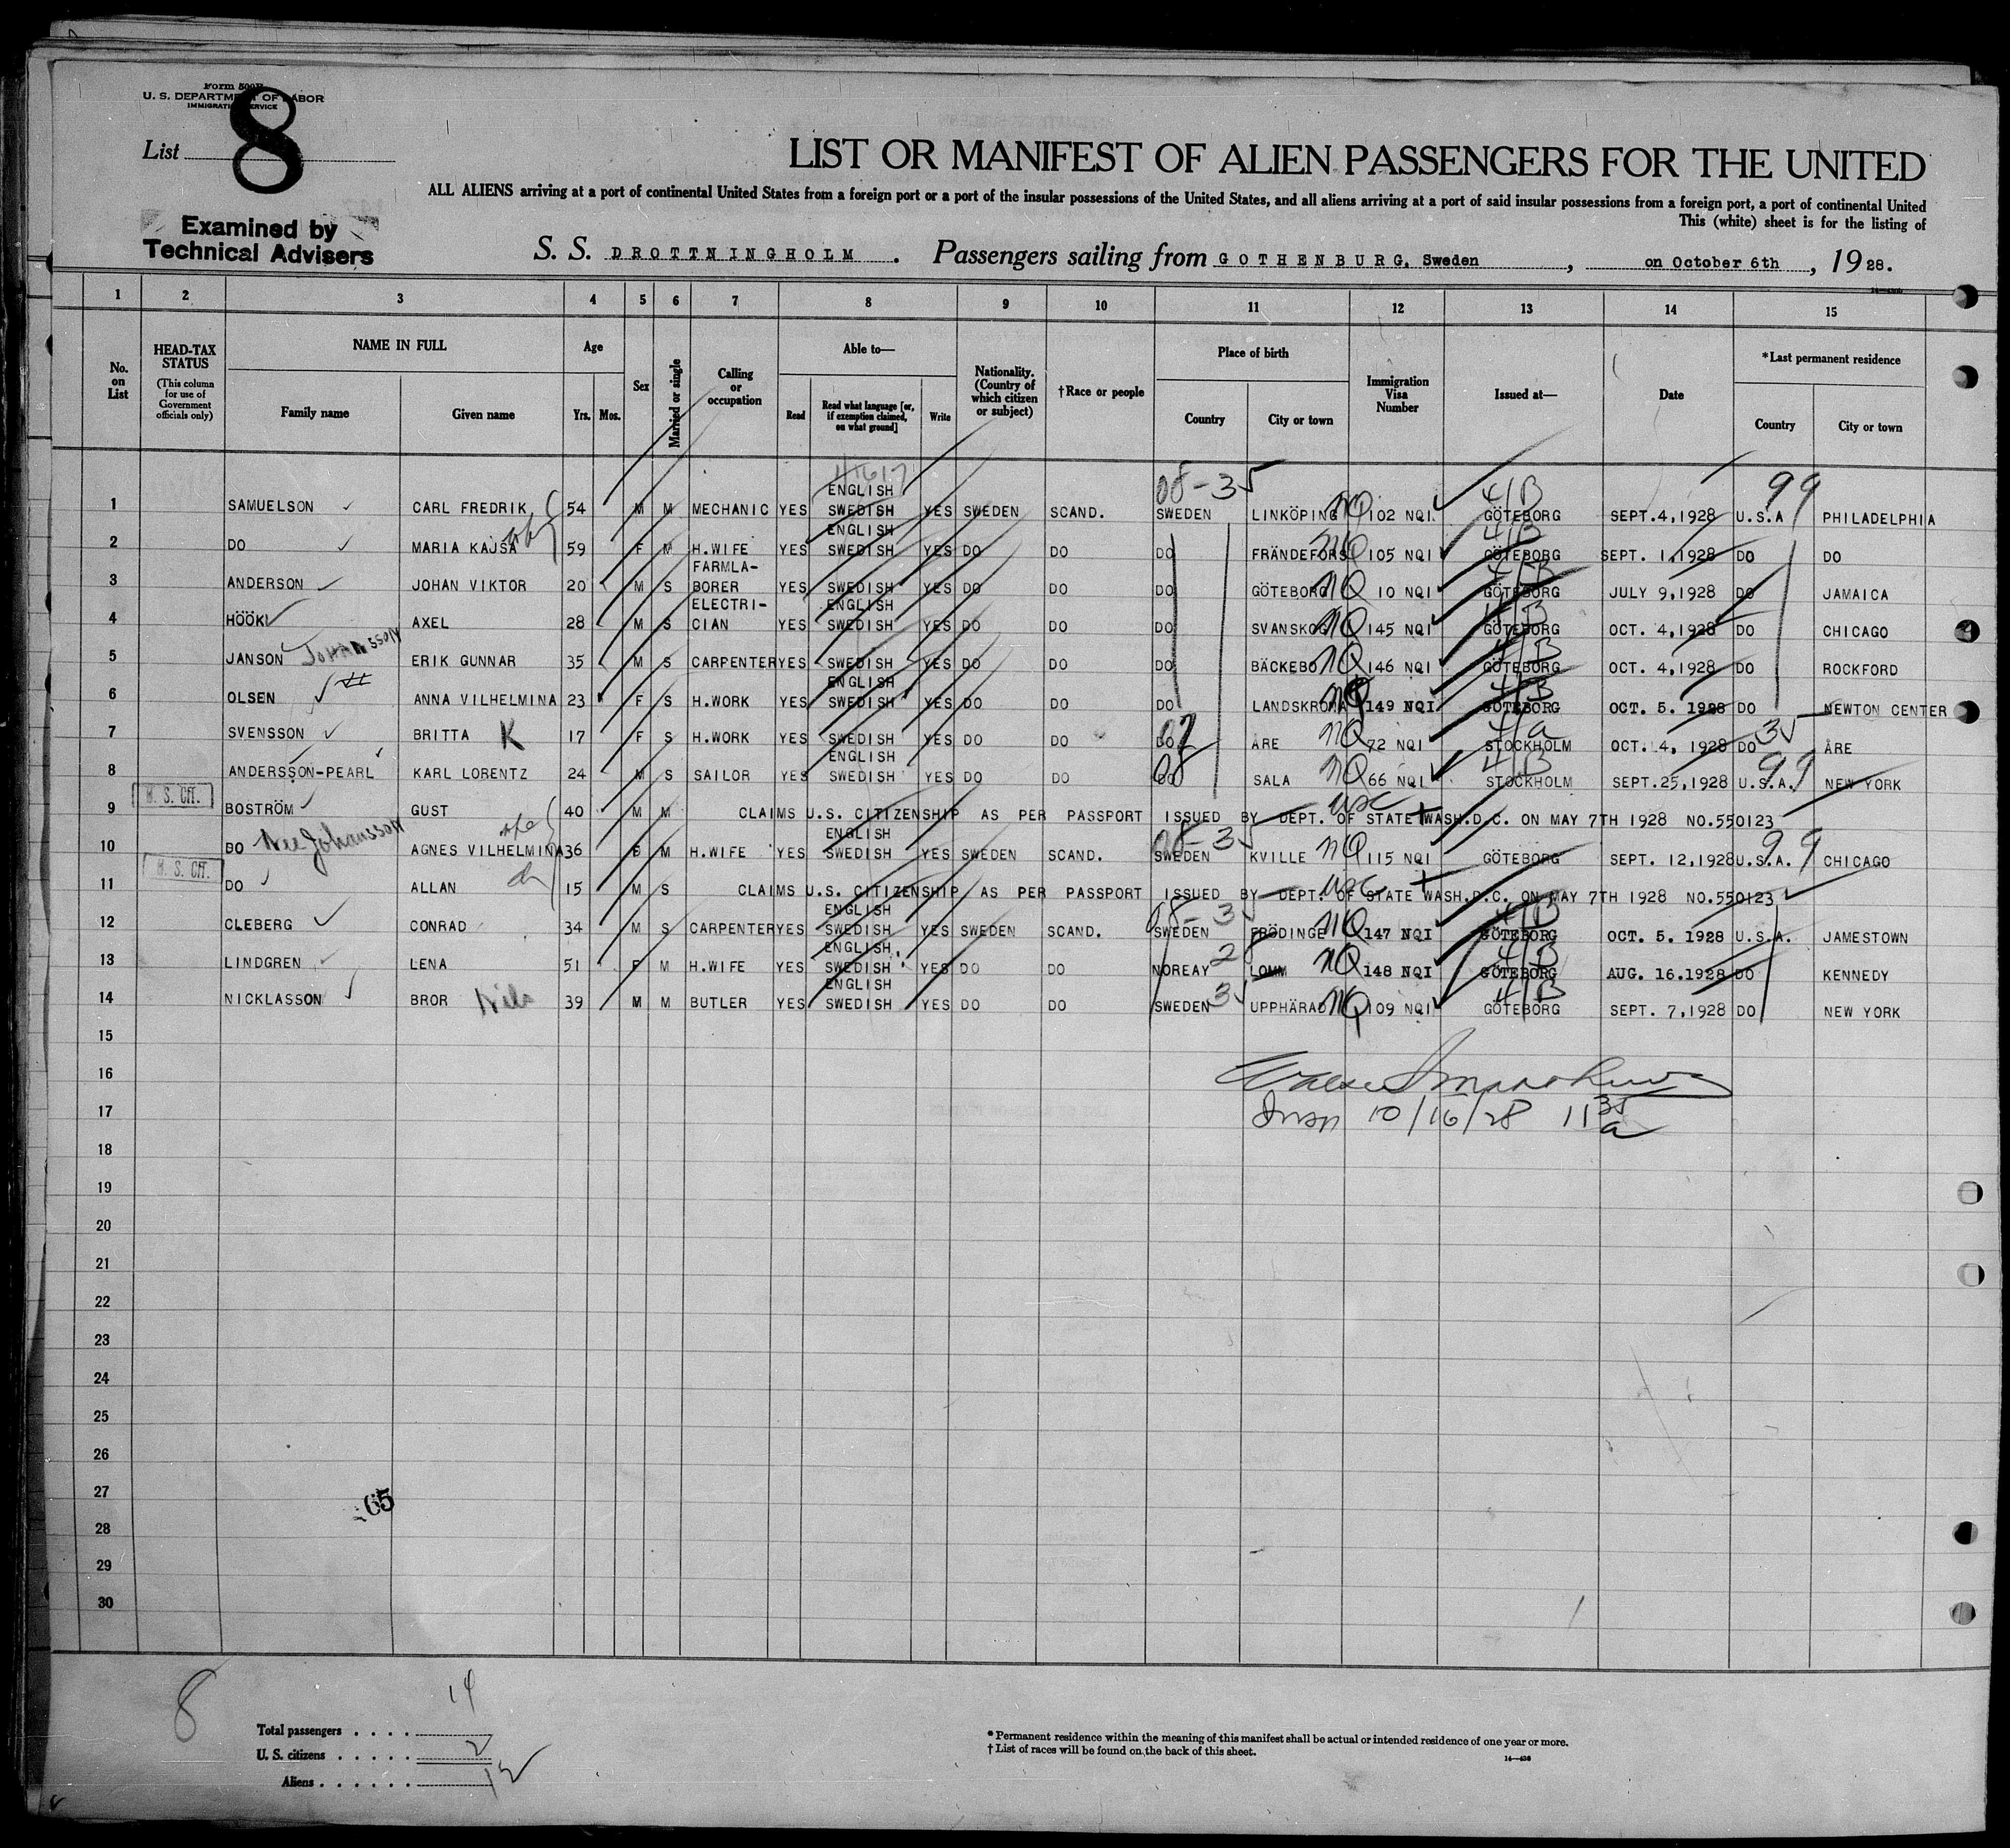 Form 500B
U. S. DEPARTMENT OF LABOR
IMMIGRATION SERVICE
List 8
LIST OR MANIFEST OF ALIEN PASSENGERS FOR THE UNITED
ALL ALIENS arriving at a port of continental United States from a foreign port or a port of the insular possessions of the United States, and all aliens arriving at a port of said insular possessions from a foreign port, a port of continental United
This (white) sheet is for the listing of
Examined by
Technical Advisers
S. S. DROTTNINGHOLM . Passengers sailing from GOTHENBURG, Sweden , on October 6th , 1928.
1 2 3 4 5 6 7 8 9 10 11 12 13 14 15
No. on List
HEAD-TAX STATUS (This column for use of Government officials only)
NAME IN FULL Family name Given name
Age Yrs. Mos.
Sex
Married or single
Calling or occupation
Able to— Read Read what language [or, if exemption claimed, on what ground] Write
Nationality. (Country of which citizen or subject)
†Race or people
Place of birth Country City or town
Immigration Visa Number
Issued at—
Date
*Last permanent residence Country City or town
1 SAMUELSON CARL FREDRIK 54 M M MECHANIC YES ENGLISH SWEDISH YES SWEDEN SCAND. 08-35 SWEDEN LINKÖPING NQ 102 NQI 4/B GÖTEBORG SEPT.4,1928 99 U.S.A PHILADELPHIA
2 DO MARIA KAJSA 59 F M H.WIFE YES ENGLISH SWEDISH YES DO DO DO FRÄNDEFORS NQ 105 NQI 4/B GÖTEBORG SEPT. 1,1928 DO DO
3 ANDERSON JOHAN VIKTOR 20 M S FARMLA-BORER YES SWEDISH YES DO DO DO GÖTEBORG NQ 10 NQI 4/B GÖTEBORG JULY 9,1928 DO JAMAICA
4 HÖÖK AXEL 28 M S ELECTRI-CIAN YES ENGLISH SWEDISH YES DO DO DO SVANSKOG NQ 145 NQI 4/B GÖTEBORG OCT. 4,1928 DO CHICAGO
5 JANSON JOHANSSON ERIK GUNNAR 35 M S CARPENTER YES SWEDISH YES DO DO DO BÄCKEBO NQ 146 NQI 4/B GÖTEBORG OCT. 4,1928 DO ROCKFORD
6 OLSEN ANNA VILHELMINA 23 F S H.WORK YES ENGLISH SWEDISH YES DO DO DO LANDSKRONA NQ 149 NQI 4/B GÖTEBORG OCT. 5. 1928 DO NEWTON CENTER
7 SVENSSON BRITTA K 17 F S H.WORK YES SWEDISH YES DO DO DO ÅRE NQ 72 NQI 4/a STOCKHOLM OCT. 4, 1928 DO 35 ÅRE
8 ANDERSSON-PEARL KARL LORENTZ 24 M S SAILOR YES ENGLISH SWEDISH YES DO DO DO SALA NQ 66 NQI 4/B STOCKHOLM SEPT.25,1928 99 U.S.A. NEW YORK
9 BOSTRÖM GUST 40 M M CLAIMS U.S. CITIZENSHIP AS PER PASSPORT ISSUED BY DEPT. OF STATE WASH.D.C. ON MAY 7TH 1928 NO.550123 USC
10 BO Nee Johansson AGNES VILHELMINA 36 F M H.WIFE YES ENGLISH SWEDISH YES SWEDEN SCAND. 08-35 SWEDEN KVILLE NQ 115 NQI GÖTEBORG SEPT. 12,1928 99 U.S.A. CHICAGO
11 DO ALLAN 15 M S CLAIMS U.S. CITIZENSHIP AS PER PASSPORT ISSUED BY DEPT. OF STATE WASH.D.C. ON MAY 7TH 1928 NO.550123 USC
12 CLEBERG CONRAD 34 M S CARPENTER YES ENGLISH SWEDISH YES SWEDEN SCAND. 08-35 SWEDEN FRÖDINGE NQ 147 NQI 4/B GÖTEBORG OCT. 5. 1928 U.S.A. JAMESTOWN
13 LINDGREN LENA 51 F M H.WIFE YES ENGLISH SWEDISH YES DO DO NOREAY 28 LOMM NQ 148 NQI 4/B GÖTEBORG AUG. 16.1928 DO KENNEDY
14 NICKLASSON BROR Nils 39 M M BUTLER YES ENGLISH SWEDISH YES DO DO SWEDEN 35 UPPHÄRAD NQ 109 NQI 4/B GÖTEBORG SEPT. 7,1928 DO NEW YORK
15
16
17 10/16/28 11 35 a
18
19
20
21
22
23
24
25
26
27
65
28
29
30
8
Total passengers . . . . 14
U. S. citizens . . . . . 2
Aliens . . . . . . 12
* Permanent residence within the meaning of this manifest shall be actual or intended residence of one year or more.
† List of races will be found on the back of this sheet.
14—430